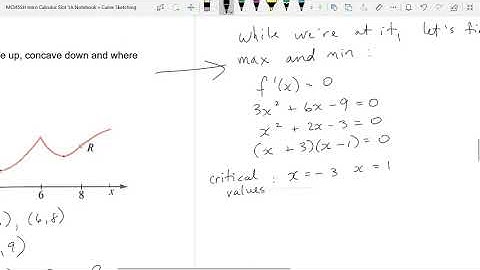 MCV4SSH Intro Calculus Slot 1A Notebook » Curve Sketching
e up, concave down and where
R
6 8 x
), (6,8)
, 9)
while we're at it, let's fi
max and min :
f'(x) = 0
3x² + 6x - 9 = 0
x² + 2x - 3 = 0
(x + 3)(x - 1) = 0
critical values : x = -3 x = 1